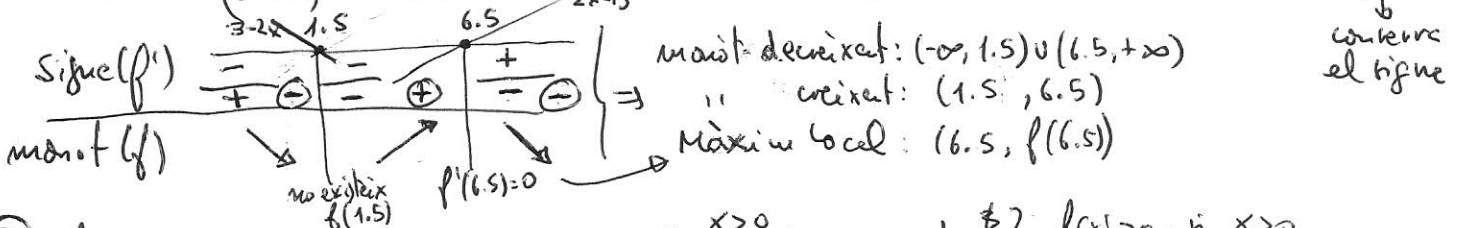 3-2x 1.5 6.5 2x-13
Signe(f') - - +
+ ⊖ - ⊕ - ⊖
monot(f) ↘ ↗ ↘
no existeix f(1.5)
f'(6.5)=0
⇒ monòt. decreixent: (-∞, 1.5) ∪ (6.5, +∞)
" creixent: (1.5, 6.5)
Màxim local: (6.5, f(6.5))
↓
conserva
el signe
x>0 x>0